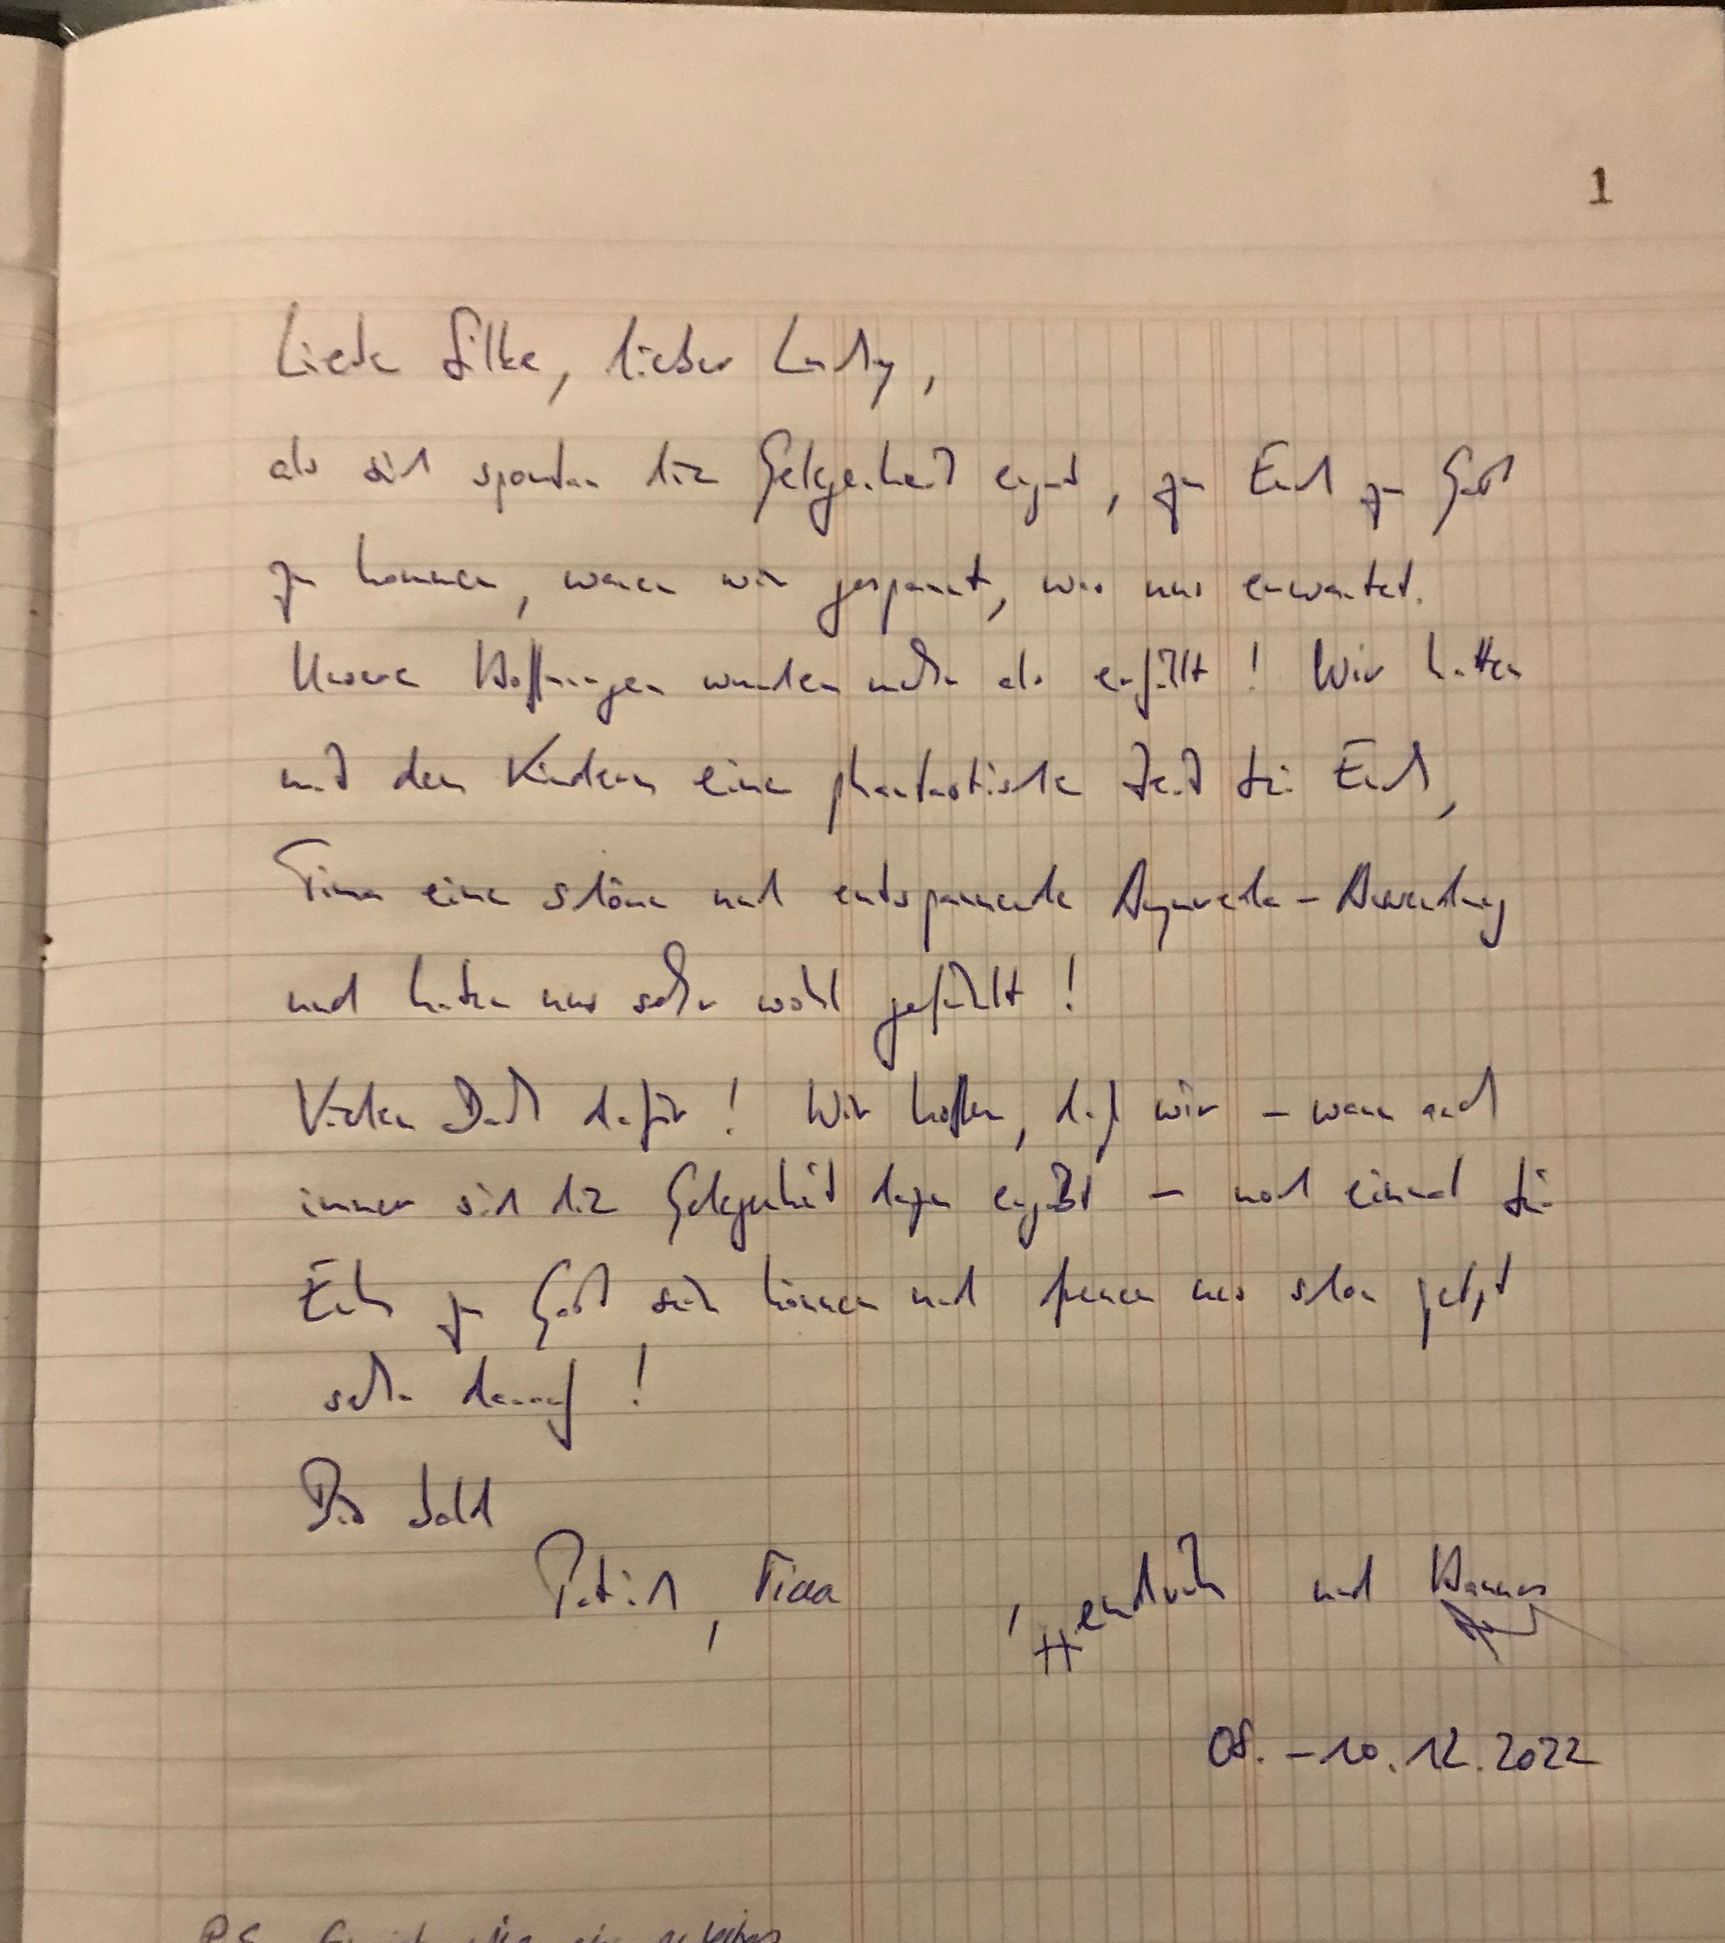 1
Liebe Silke, lieber
als sich spontan die Gelegenheit ergab, zu Euch zu Gast
zu kommen, waren wir gespannt, was uns erwartet.
Unsere Hoffnungen wurden mehr als erfüllt! Wir hatten
mit den Kindern eine phantastische Zeit bei Euch,
Tina eine schöne und entspannende Ayurveda-Anwendung
und haben uns sehr wohl gefühlt!
Vielen Dank dafür! Wir hoffen, daß wir – wann auch
immer sich die Gelegenheit dazu ergibt – noch einmal bei
Euch zu Gast sein können und freuen uns schon jetzt
sehr darauf!
Bis bald
Patrick, Tina, Hendrik und Hannes
08.–10.12.2022